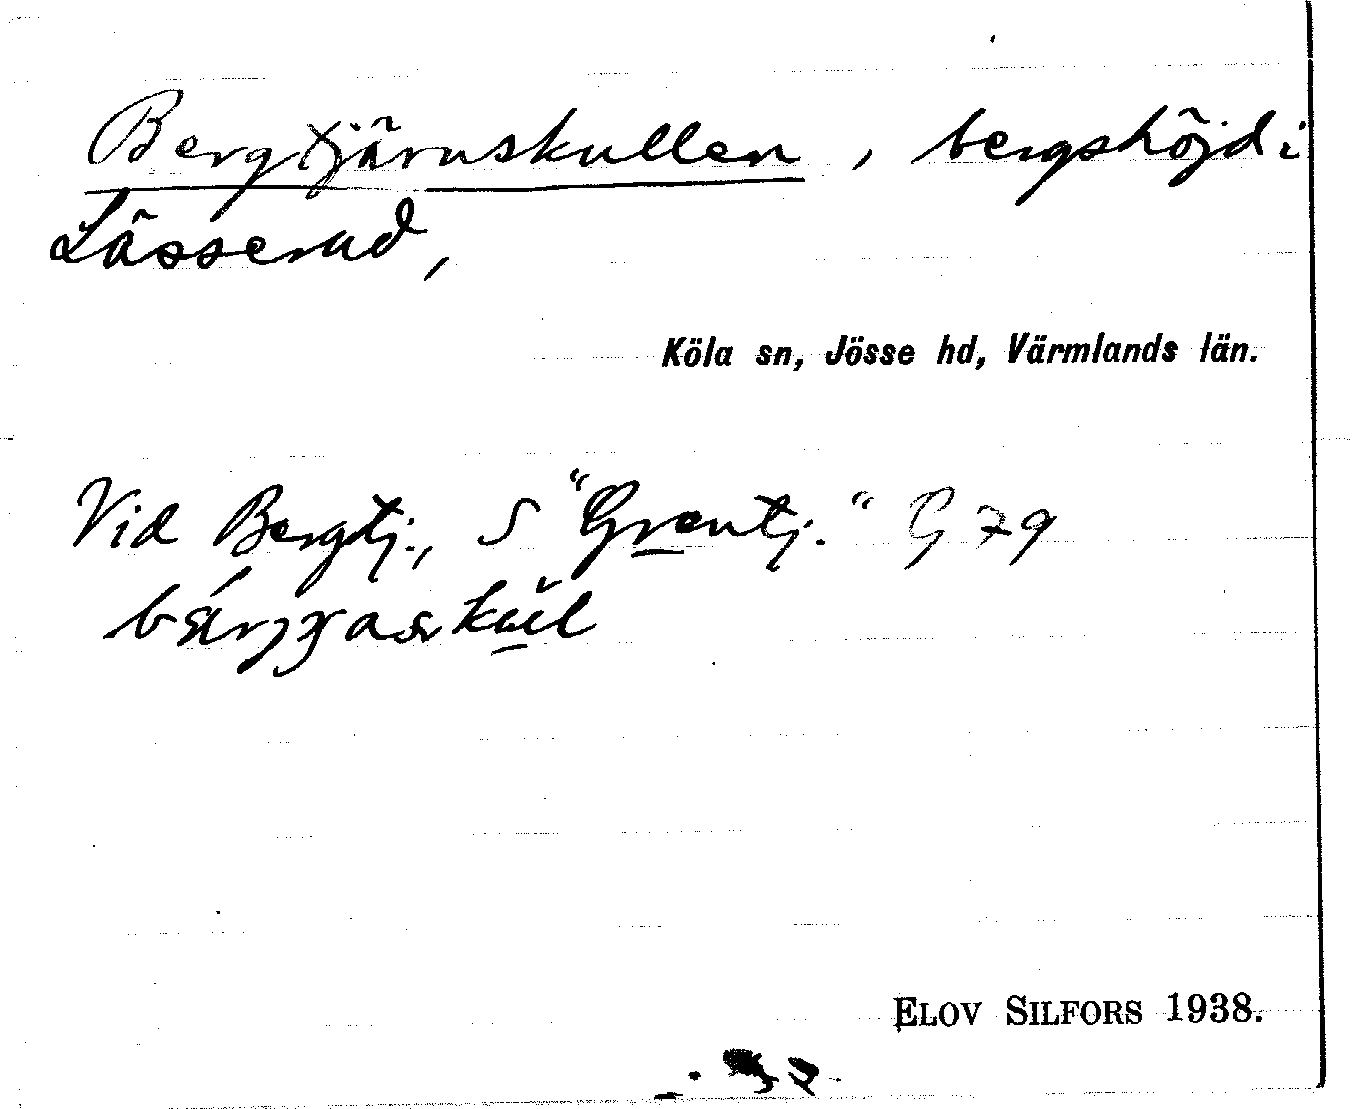 Bergtjärnskullen, bergshöjd i
Lässerud,
Köla sn, Jösse hd, Värmlands län.
Vid Bergtj., S "Grentj." G 79
ELOV SILFORS 1938.